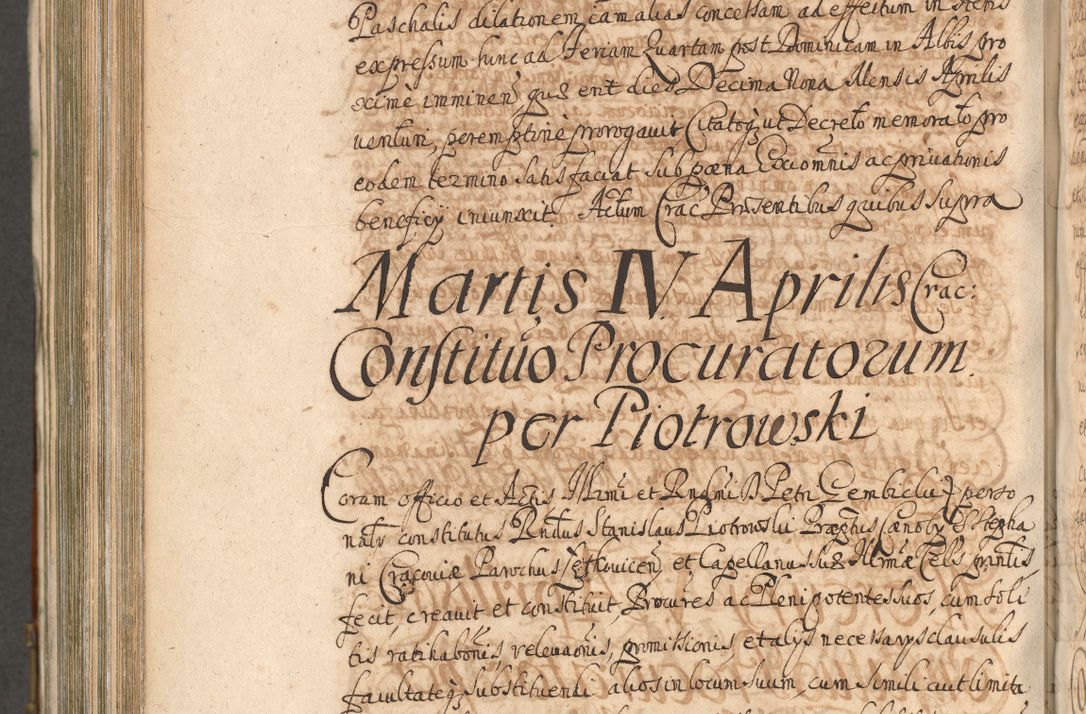 Paschalis dilationem iam alias concessam ad effectum in actis
expressum hunc ad Feriam Quartam post Dominicam in Albis pro
oxime imminen quæ erit dies Decima Nona Mensis Aprilis
ventum, peremptiné prorogavit, Citatoqz ut Decreto memorato pro
eodem termino satisfaciat sub pœna Excomnis ac privationis
beneficij iniunxit. Actum Crac Præsentibus quibus supra
Martis IV. Aprilis Crac:
Constituo Procuratorum.
per Piotrowski
Coram officio et Actis Illrmi et Rndmi D Petri Gembicki perso
nalr constitutus Rndus Stanislaus Piotrowski Præptus Canoby S Stepha
ni Cracoviæ Parochus et Capellanus suæ Illrmæ Cels printis
fecit, creavit et constituit, Procures ac Plenipotentes suos, cum soli
tis ratihabonis, relevaonis, promissionis, et alys necessarys clausulis
facultateqz substituendi alios in locum suum, cum simili aut limita